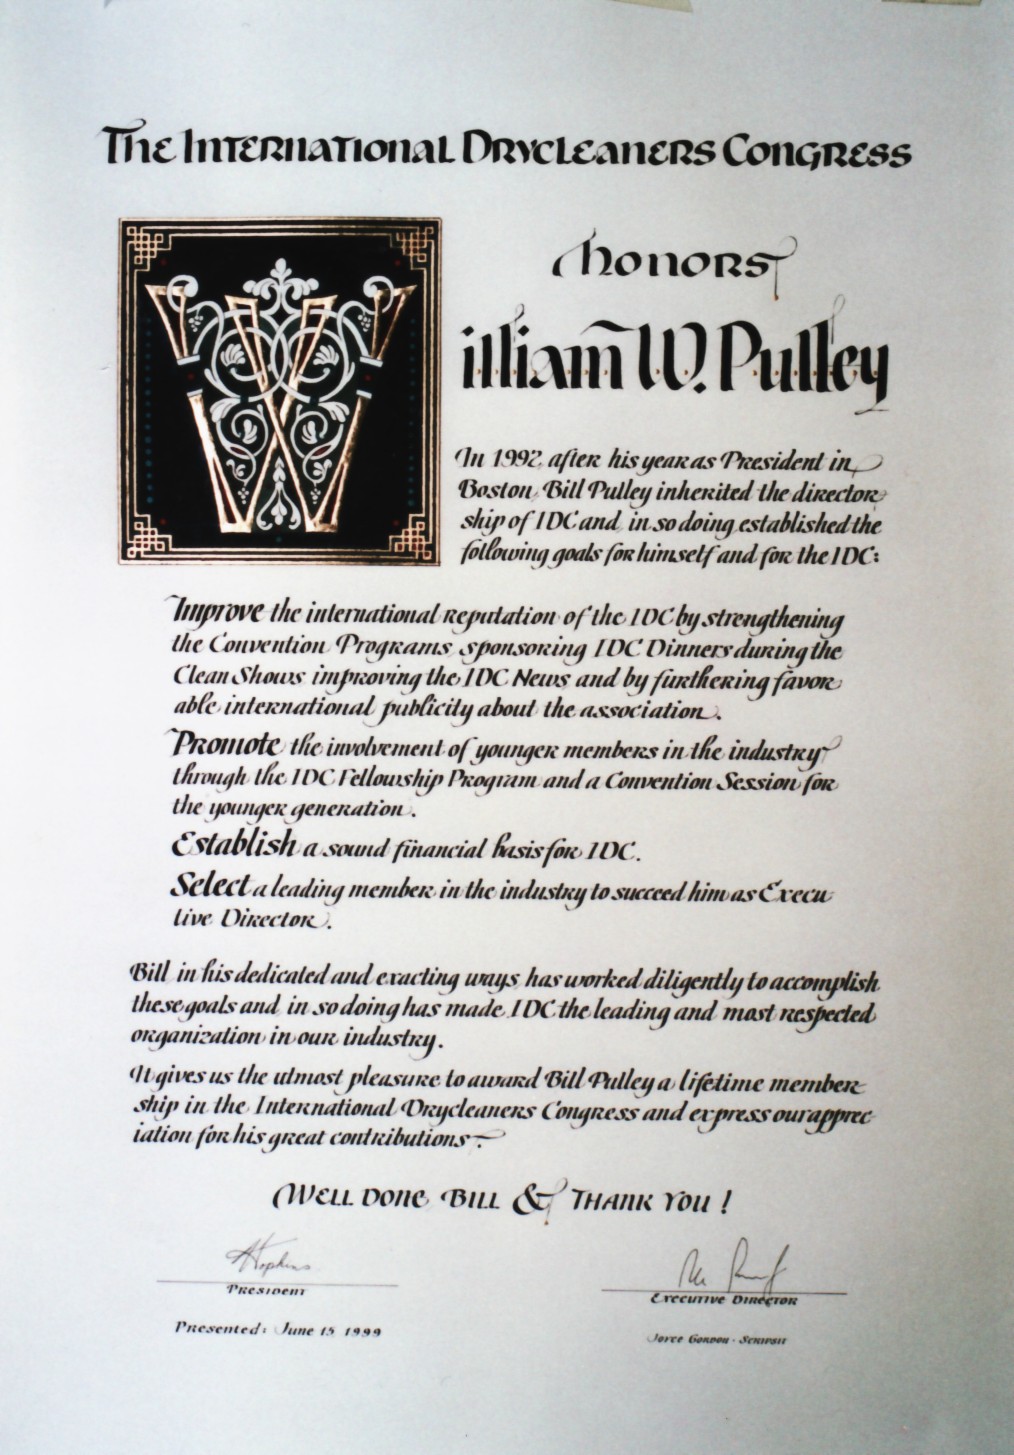 The International Drycleaners Congress
Honors
William W. Pulley
In 1992, after his year as President in
Boston, Bill Pulley inherited the director
ship of IDC and in so doing established the
following goals for himself and for the IDC:
Improve the international reputation of the IDC by strengthening
the Convention Programs, sponsoring IDC Dinners during the
Clean Shows improving the IDC News and by furthering favor
able international publicity about the association.
Promote the involvement of younger members in the industry
through the IDC Fellowship Program and a Convention Session for
the younger generation.
Establish a sound financial basis for IDC.
Select a leading member in the industry to succeed him as Execu
tive Director.
Bill in his dedicated and exacting ways has worked diligently to accomplish
these goals and in so doing has made IDC the leading and most respected
organization in our industry.
It gives us the utmost pleasure to award Bill Pulley a lifetime member
ship in the International Drycleaners Congress and express our apprec
iation for his great contributions.
Well done Bill & Thank you!
Hopkins
President
Executive Director
Presented: June 15 1999
Joyce Gordon